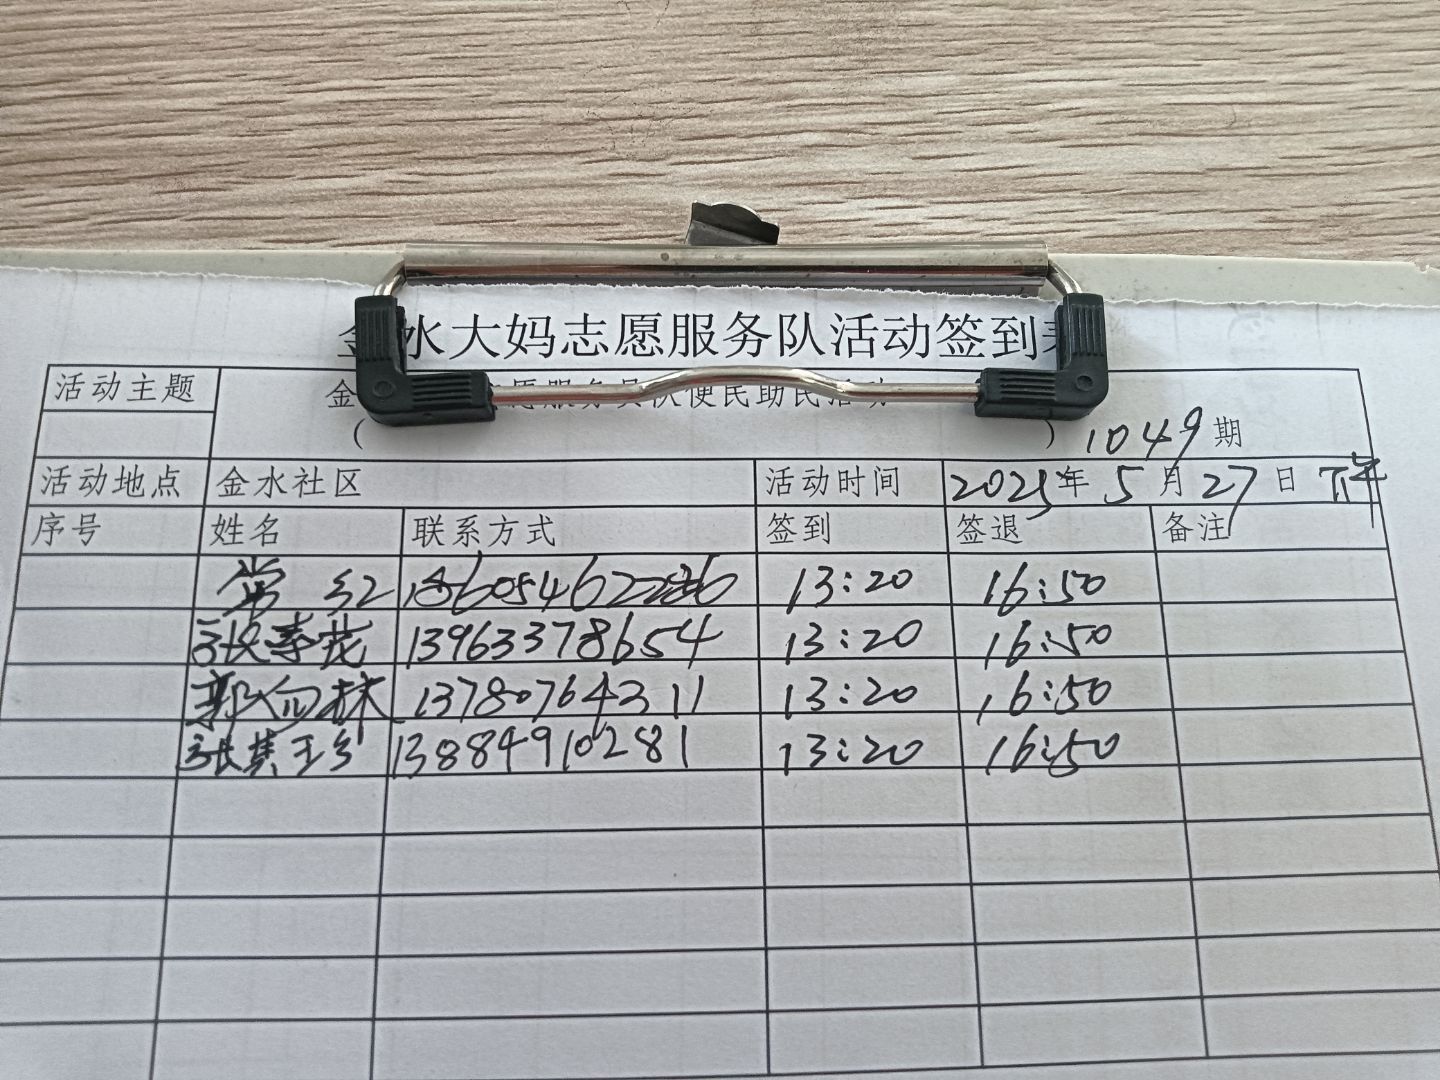 水大妈志愿服务队活动签到
活动主题 金 便民助民活动
( ) 1049期
活动地点 金水社区 活动时间 2025年5月27日 下午
序号 姓名 联系方式 签到 签退 备注
常红 13:20 16:50
张素花 13963378654 13:20 16:50
郭向林 13780764311 13:20 16:50
张其玉 13884910281 13:20 16:50